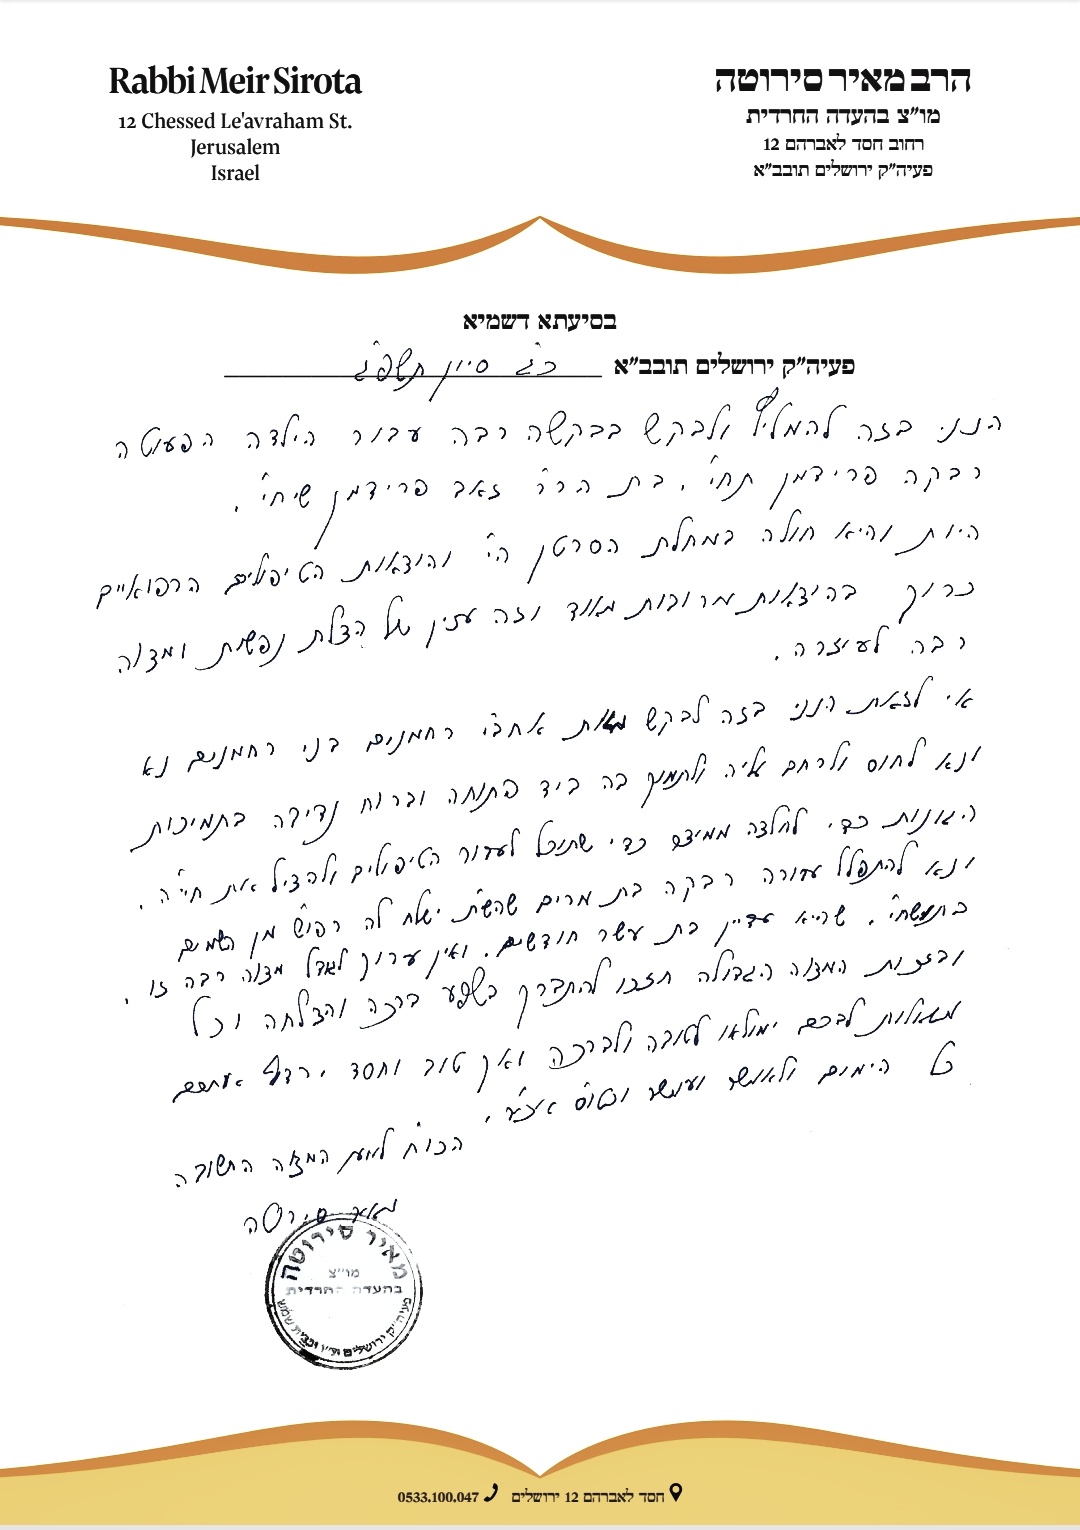 Rabbi Meir Sirota
12 Chessed Le'avraham St.
Jerusalem
Israel
הרב מאיר סירוטה
מו"צ בהעדה החרדית
רחוב חסד לאברהם 12
פעיה"ק ירושלים תובב"א
בסיעתא דשמיא
פעיה"ק ירושלים תובב"א כ"ג סיון תשפ"ג
הנני בזה להמליץ ולבקש בבקשה רבה עבור הילדה הפעוטה
רבקה פרידמן תחי', בת הר"ר זאב פרידמן שיחי'.
היות והיא חולה במחלת הסרטן ה"י והוצאות הטיפולים הרפואיים
כרוך בהוצאות מרובות מאוד וזה ענין של הצלת נפשות ומצוה
רבה לעיזרה.
אי לזאת הנני בזה לבקש מאת אחב"י רחמנים בני רחמנים נא
ונא לחוס ולרחם עליה ולתמוך בה ביד פתוחה וברוח נדיבה בתמיכות
הגונות כדי לחלצה ממיצר כדי שתוכל לעבור הטיפולים ולהציל את חייה.
ונא להתפלל עבורה רבקה בת מרים שהשי"ת ישלח לה רפו"ש מן השמים
שהיא עדיין בת עשר חודשים. ואין ערוך לגודל מצוה רבה זו.
ובזכות המצוה הגדולה תזכו להתברך בשפע ברכה והצלחה וכל
משאלות לבכם ימולאו לטובה ולברכה ואך טוב וחסד ירדוף אתכם
כל הימים ולאושר ועושר וכטו"ס אכי"ר.
הכו"ח למען המצוה החשובה
מאיר סירוטה
מאיר סירוטה
מו"צ
בהעדה החרדית
פעיה"ק ירושלים ת"ו ובבית שמש
חסד לאברהם 12 ירושלים 0533.100.047